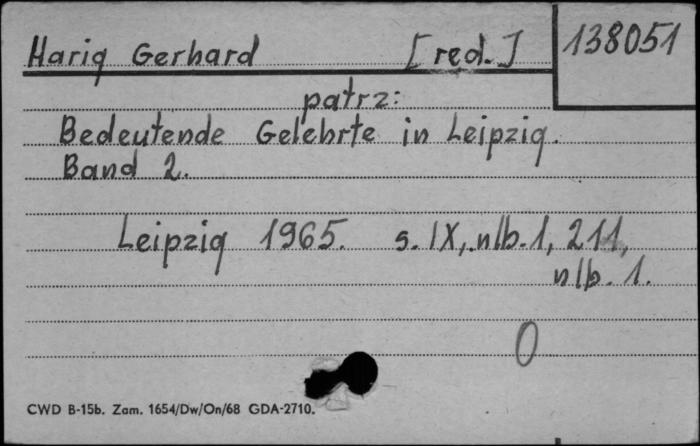 Harig Gerhard [red.] 138051
patrz:
Bedeutende Gelehrte in Leipzig.
Band 2.
Leipzig 1965. s. IX, nlb. 1, 211,
nlb. 1.
0
CWD B-15b. Zam. 1654/Dw/On/68 GDA-2710.